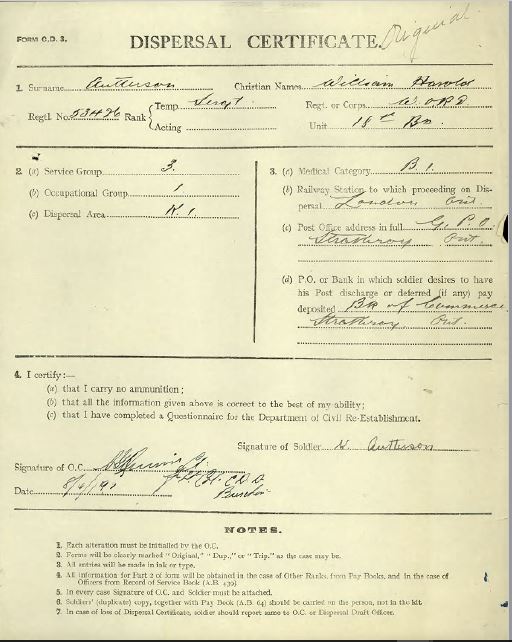 FORM C.D. 3.
DISPERSAL CERTIFICATE.
Original
1. Surname Autterson Christian Names William Harold
Regtl. No. 53496 Rank { Temp. Sergt. Regt. or Corps W. ORD
Acting Unit 18th Bn.
2. (a) Service Group 3.
(b) Occupational Group 1
(c) Dispersal Area K. 1.
3. (a) Medical Category B 1.
(b) Railway Station to which proceeding on Dis-
persal London Ont
(c) Post Office address in full G. P. O.
Strathroy Ont.
(d) P.O. or Bank in which soldier desires to have
his Post discharge or deferred (if any) pay
deposited Bk of Commerce
Strathroy Ont.
4. I certify:—
(a) that I carry no ammunition;
(b) that all the information given above is correct to the best of my ability;
(c) that I have completed a Questionnaire for the Department of Civil Re-Establishment.
Signature of Soldier W. Autterson
Signature of O.C. C.D.D.
Date Buxton
NOTES.
1. Each alteration must be initialled by the O.C.
2. Forms will be clearly marked "Original," "Dup.," or "Trip." as the case may be.
3. All entries will be made in ink or type.
4. All information for Part 2 of form will be obtained in the case of Other Ranks, from Pay Books, and in the case of
Officers from Record of Service Book (A.B. 439)
5. In every case Signature of O.C. and Soldier must be attached.
6. Soldiers' (duplicate) copy, together with Pay Book (A.B. 64) should be carried on the person, not in the kit
7. In case of loss of Dispersal Certificate, soldier should report same to O.C. or Dispersal Draft Officer.